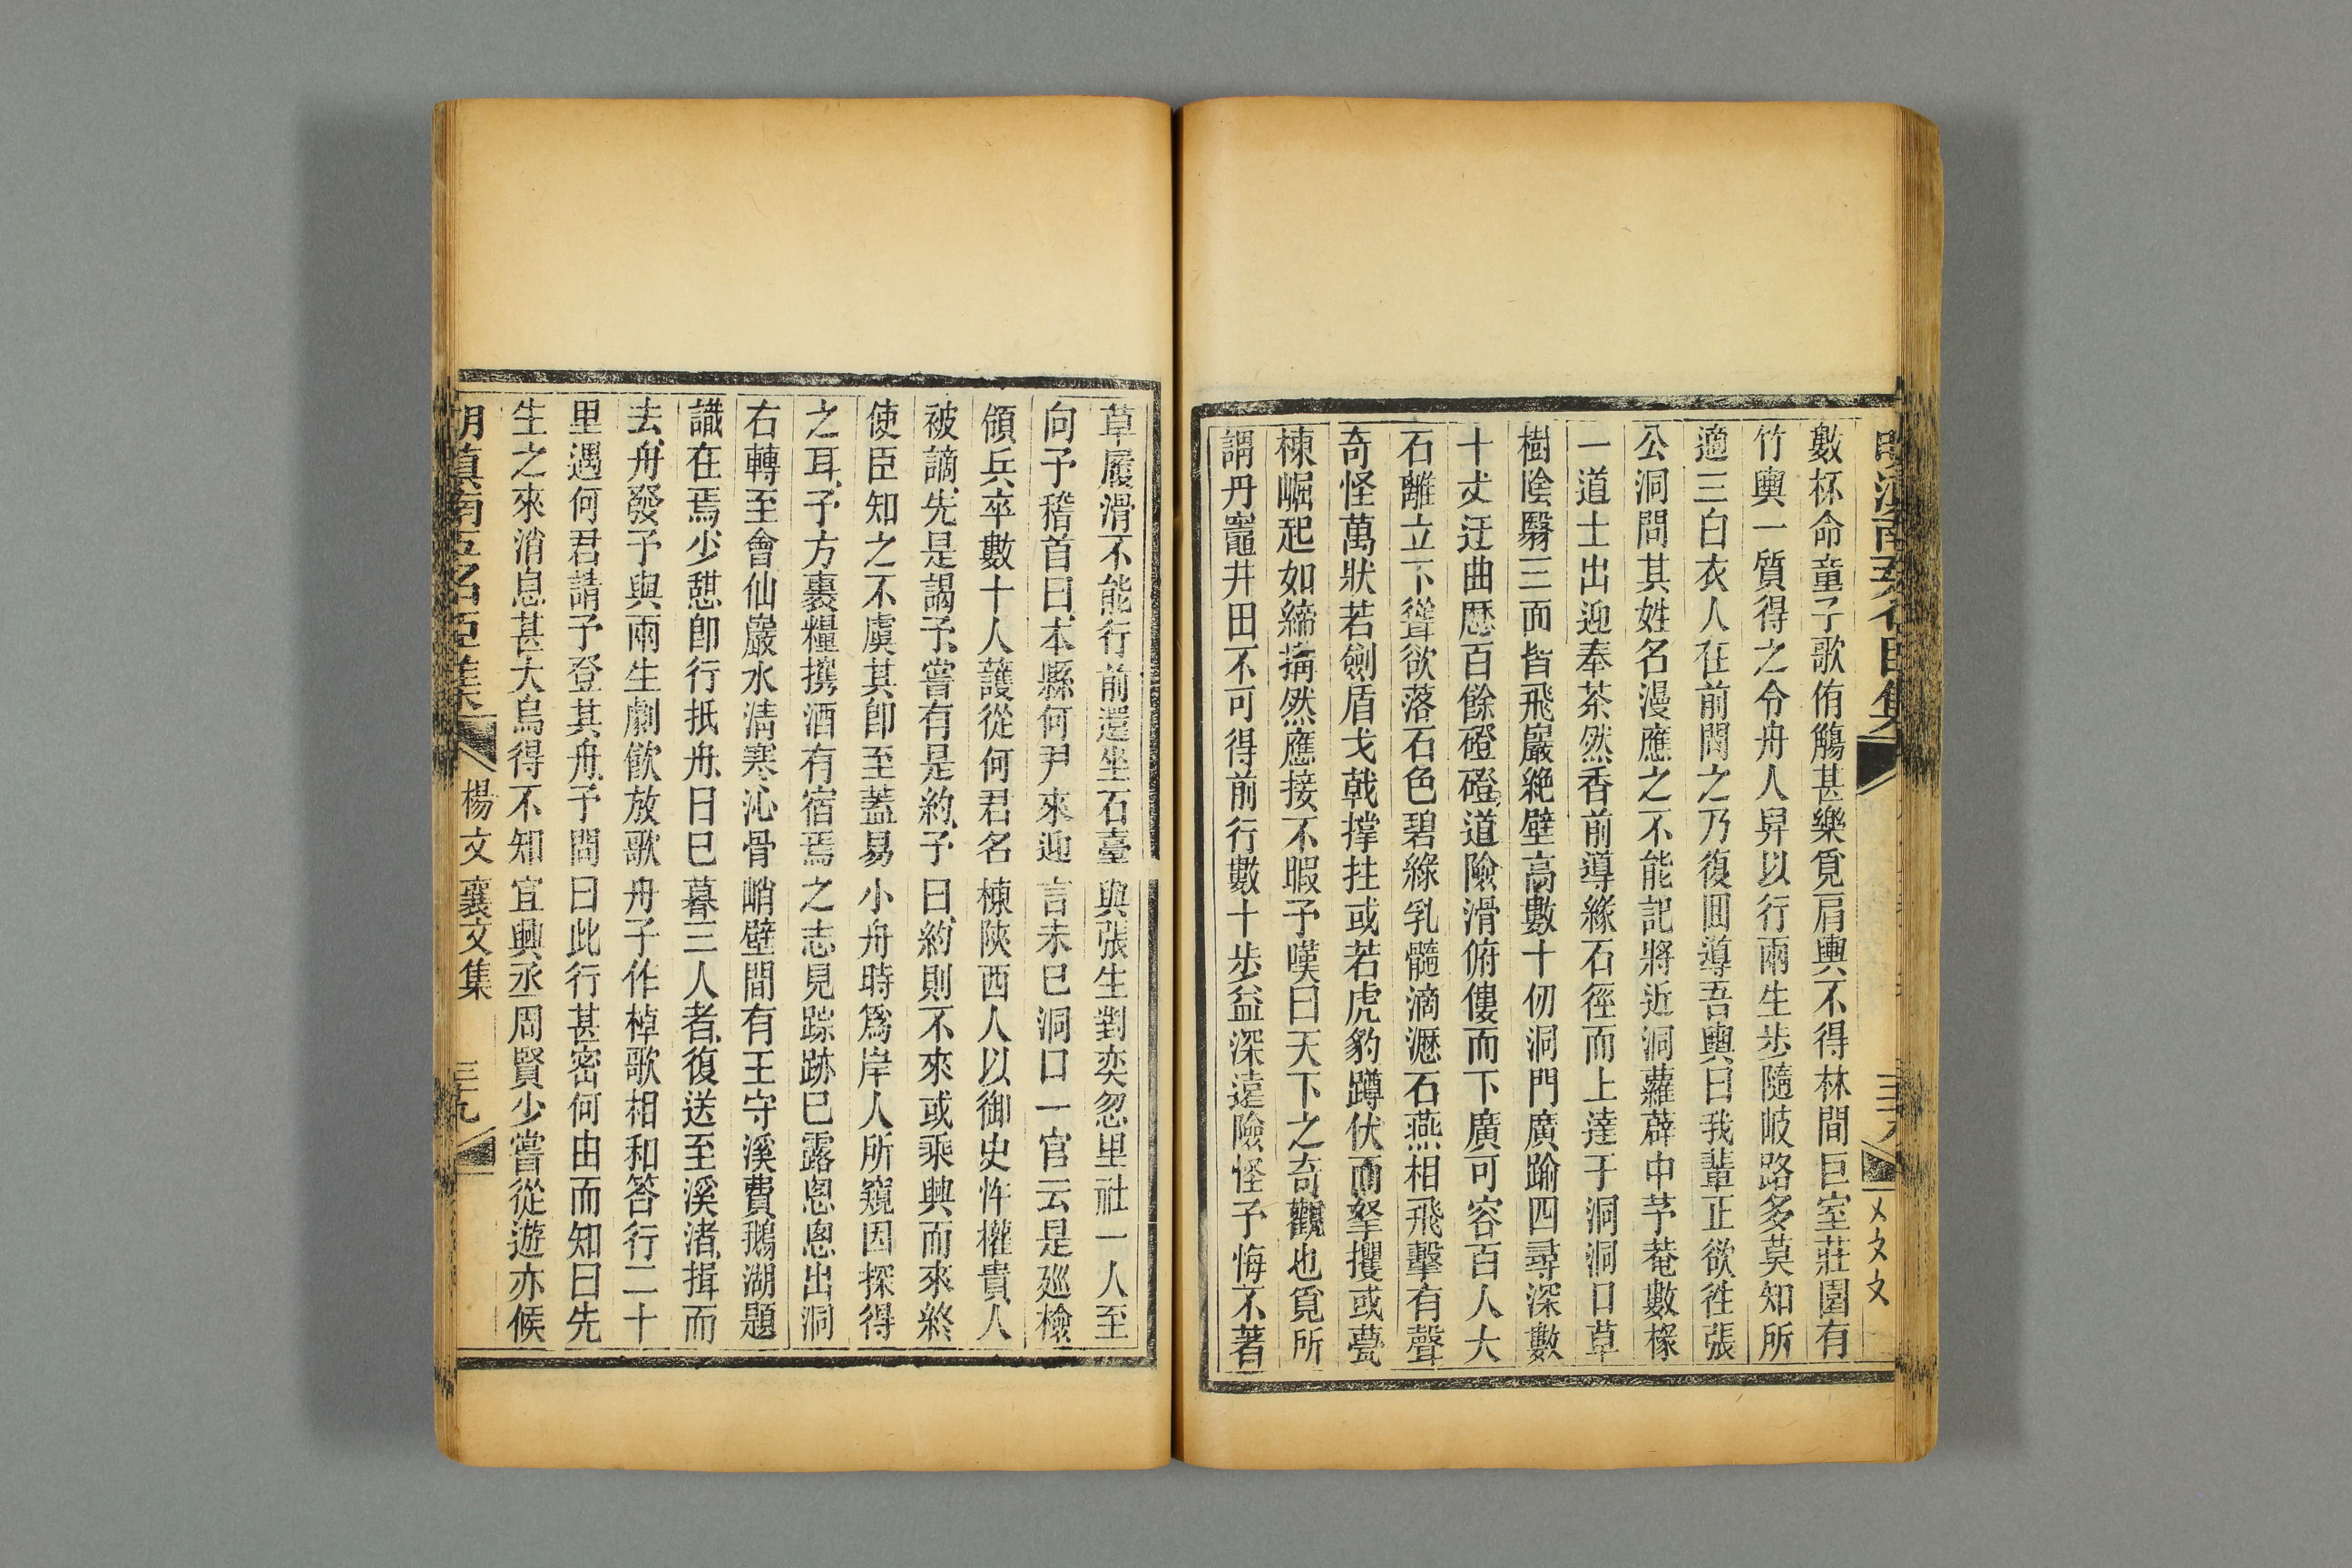 數杯命童子歌侑觴甚樂覓肩輿不得林間巨室莊園有
竹輿一質得之令舟人舁以行兩生步隨岐路多莫知所
適三白衣人在前問之乃復回導吾輿曰我輩正欲徃張
公洞問其姓名漫應之不能記將近洞蘿薜中芧菴數椽
一道士出迎奉茶然香前導緣石徑而上達于洞洞口草
樹陰翳三面皆飛巖絶壁高數十仞洞門廣踰四尋深數
十丈迂曲歷百餘磴磴道險滑俯僂而下廣可容百人大
石離立下聳欲落石色碧緣乳髓滴瀝石燕相飛擊有聲
奇怪萬狀若劍盾戈戟撑拄或若虎豹蹲伏而拏攫或甍
棟崛起如締搆然應接不暇予嘆曰天下之奇觀也覓所
謂丹竈井田不可得前行數十步益深遠險怪予悔不著
草履滑不能行前還坐石臺與張生對奕忽里社一人至
向予稽首曰本縣何尹來迎言未巳洞口一官云是廵檢
領兵卒數十人護從何君名棟陝西人以御史忤權貴人
被謫先是謁予嘗有是約予曰約則不來或乘興而來終
使臣知之不虞其卽至蓋易小舟時爲岸人所窺因探得
之耳予方裹糧攜酒有宿焉之志見踪跡巳露恖恖出洞
右轉至會仙巖水清寒沁骨峭壁間有王守溪費鵝湖題
識在焉少憇卽行抵舟日巳暮三人者復送至溪渚揖而
去舟發予與兩生劇飲放歌舟子作棹歌相和答行二十
里遇何君請予登其舟予問曰此行甚密何由而知曰先
生之來消息甚大烏得不知宜興丞周賢少嘗從遊亦候
明滇南五名臣集 楊文襄文集 三九